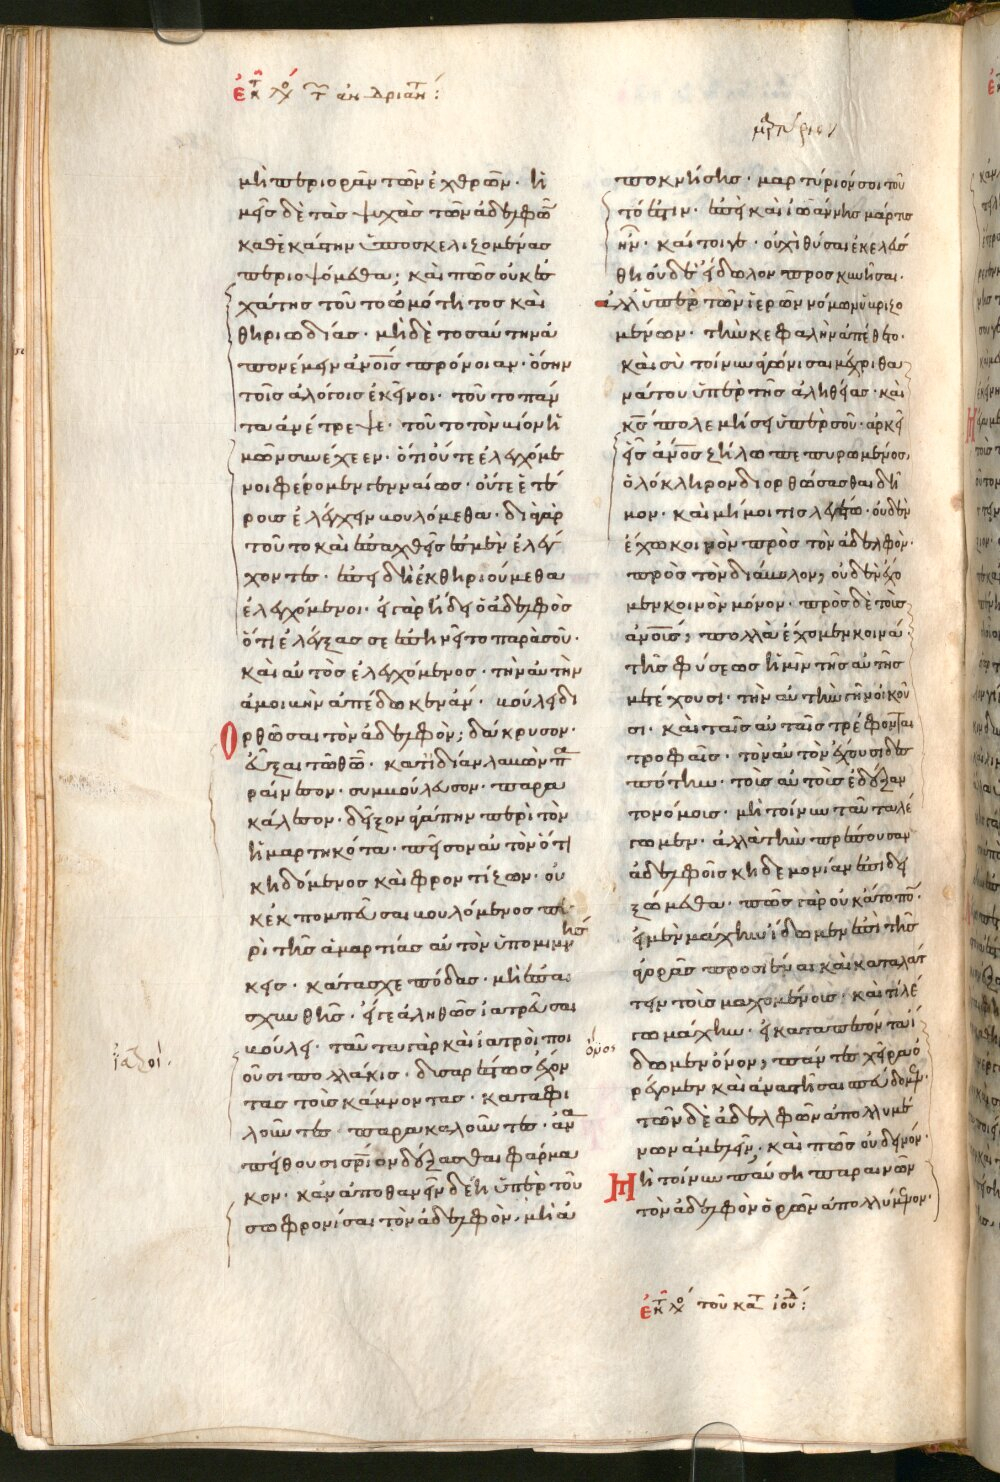 ἐκ τ λόγ τ ἀνδριάντ:
μαρτύριον
μὴ περιορᾶν τῶν ἐχθρῶν· ἡ
μεῖς δὲ τὰς ψυχὰς τῶν ἀδελφῶ
καθεκάστην ὑποσκελιζομένας
περιοψόμεθα; καὶ πῶς οὐκ ἐσ
χάτης τοῦτο ὠμότητος καὶ
θηριωδίας· μηδὲ τοσαύτην ἀ
πονέμειν ἀνοις πρόνοιαν· ὅσην
τοῖς ἀλόγοις ἐκεῖνοι· τοῦτο πάν
τα ἀνέτρεψε· τοῦτο τὸν βίον ἡ
μῶν συνέχεεν· ὅτι οὔτε ἐλεγχόμε
νοι φέρομεν γενναίως· οὔτε ἑτέ
ροις ἐλέγχειν βουλόμεθα· διὰ γὰρ
τοῦτο καὶ ἐπαχθεῖς ἐσμὲν ἐλέγ
χοντες· ἐπειδὴ ἐκθηριούμεθα
ἐλεγχόμενοι· εἰ γὰρ ἤδει ὁ ἀδελφὸς
ὅτι ἐλέγξας σε ἐπηνεῖτο παρὰ σοῦ·
καὶ αὐτὸς ἐλεγχόμενος· τὴν αὐτὴν
ἀμοιβὴν ἀπέδωκεν ἄν· βούλει δι
Ορθῶσαι τὸν ἀδελφὸν; δάκρυσον·
εὖξαι τῶ θῶ· κατ' ἰδίαν λαβὼν π
ραίνεσον· συμβούλευσον· παρα
κάλεσον· δεῖξον ἀγάπην περὶ τὸν
ἡμαρτηκότα· πεῖσον αὐτὸν ὅτι
κηδόμενος καὶ φροντίζων· οὐ
κ ἐκπομπεῦσαι βουλόμενος πε
ρὶ τῆς ἁμαρτίας αὐτὸν ὑπομιμνή
κεις· κατάσχε πόδας· μὴ ἐπαι
σχυνθῆς· εἴ γε ἀληθῶς ἰατρεῦσαι
βούλει· ταῦτα γὰρ καὶ ἰατροὶ ποι
οῦσι πολλάκις· δυσαρέστως ἔχον
τας τοὺς κάμνοντας· καταφι
λοῦντες παρακαλοῦντες· ἀν
πείθουσι σριον δέξασθαι φάρμα
κον· κἂν ἀποθανεῖν δέη ὑπὲρ τοῦ
σωφρονίσαι τὸν ἀδελφὸν· μὴ ἀ
ἰατροί·
ποκνήσης· μαρτύριόν σοι τοῦ
τό ἐστιν· ἐπεὶ καὶ ἰωάννης μάρτυς
ἦν· καίτοιγε· οὐχὶ θῦσαι ἐκελεύσ
θη οὐδὲ εἴδωλον προσκυνῆσαι·
ἀλλ' ὑπὲρ τῶν ἱερῶν νόμων ὑβριζο
μένων· τὴν κεφαλὴν ἀπέθετο·
καὶ σὺ τοίνυν ἀγώνισαι μέχρι θα
νάτου ὑπὲρ τῆς ἀληθείας· καὶ
κς πολεμήσει ὑπὲρ σοῦ· ἀρκεῖ
εἷς ἀνος ζήλω πεπυρωμένος·
ὁλόκληρον διορθώσασθαι δῆ
μον· καὶ μή μοι τις λεγέτω· οὐδὲν
ἔχω κοινὸν πρὸς τὸν ἀδελφὸν·
πρὸς τὸν διάβολον; οὐδὲν ἔχο
μεν κοινὸν μόνον· πρὸς δὲ τοὺς
ἀνους; πολλὰ ἔχομεν κοινά·
τῆς φύσεως ἡμῖν τῆς αὐτῆς
μετέχουσι· τὴν αὐτὴν γῆν οἰκοῦ
σι· καὶ ταῖς αὐταῖς τρέφονται
τροφαῖς· τὸν αὐτὸν ἔχουσι δεσ
πότην· τοὺς αὐτοὺς ἐδέξαν
το νόμους· μὴ τοίνυν ταῦτα λέ
γωμεν· ἀλλὰ τὴν πρέπουσαν
ἀδελφοῖς κηδεμονίαν ἐπιδει
ξώμεθα· πῶς γὰρ οὐκ ἄτοπον·
εἰ μὲν μάχην ἴδωμεν ἐπὶ τῆς
ἀγορᾶς προσιέναι καὶ καταλάτ
τειν τοὺς μαχομένους· καὶ τί λέ
γω μάχην· εἰ καταπεσόντα ἴ
δωμεν ὄνον; πάντες χεῖρα ὀ
ρέγομεν καὶ ἀναστῆσαι σπεύδομεν·
τῶν δὲ ἀδελφῶν ἀπολλυμέ
νων ἀμελεῖν; καὶ πῶς οὐ δεινόν·
Μὴ τοίνυν παύση παραινῶν
τὸν ἀδελφὸν ὁρῶν ἀπολλύμενον·
ὄνος
ἐκ τ λόγ τοῦ κατ ἰουδ: